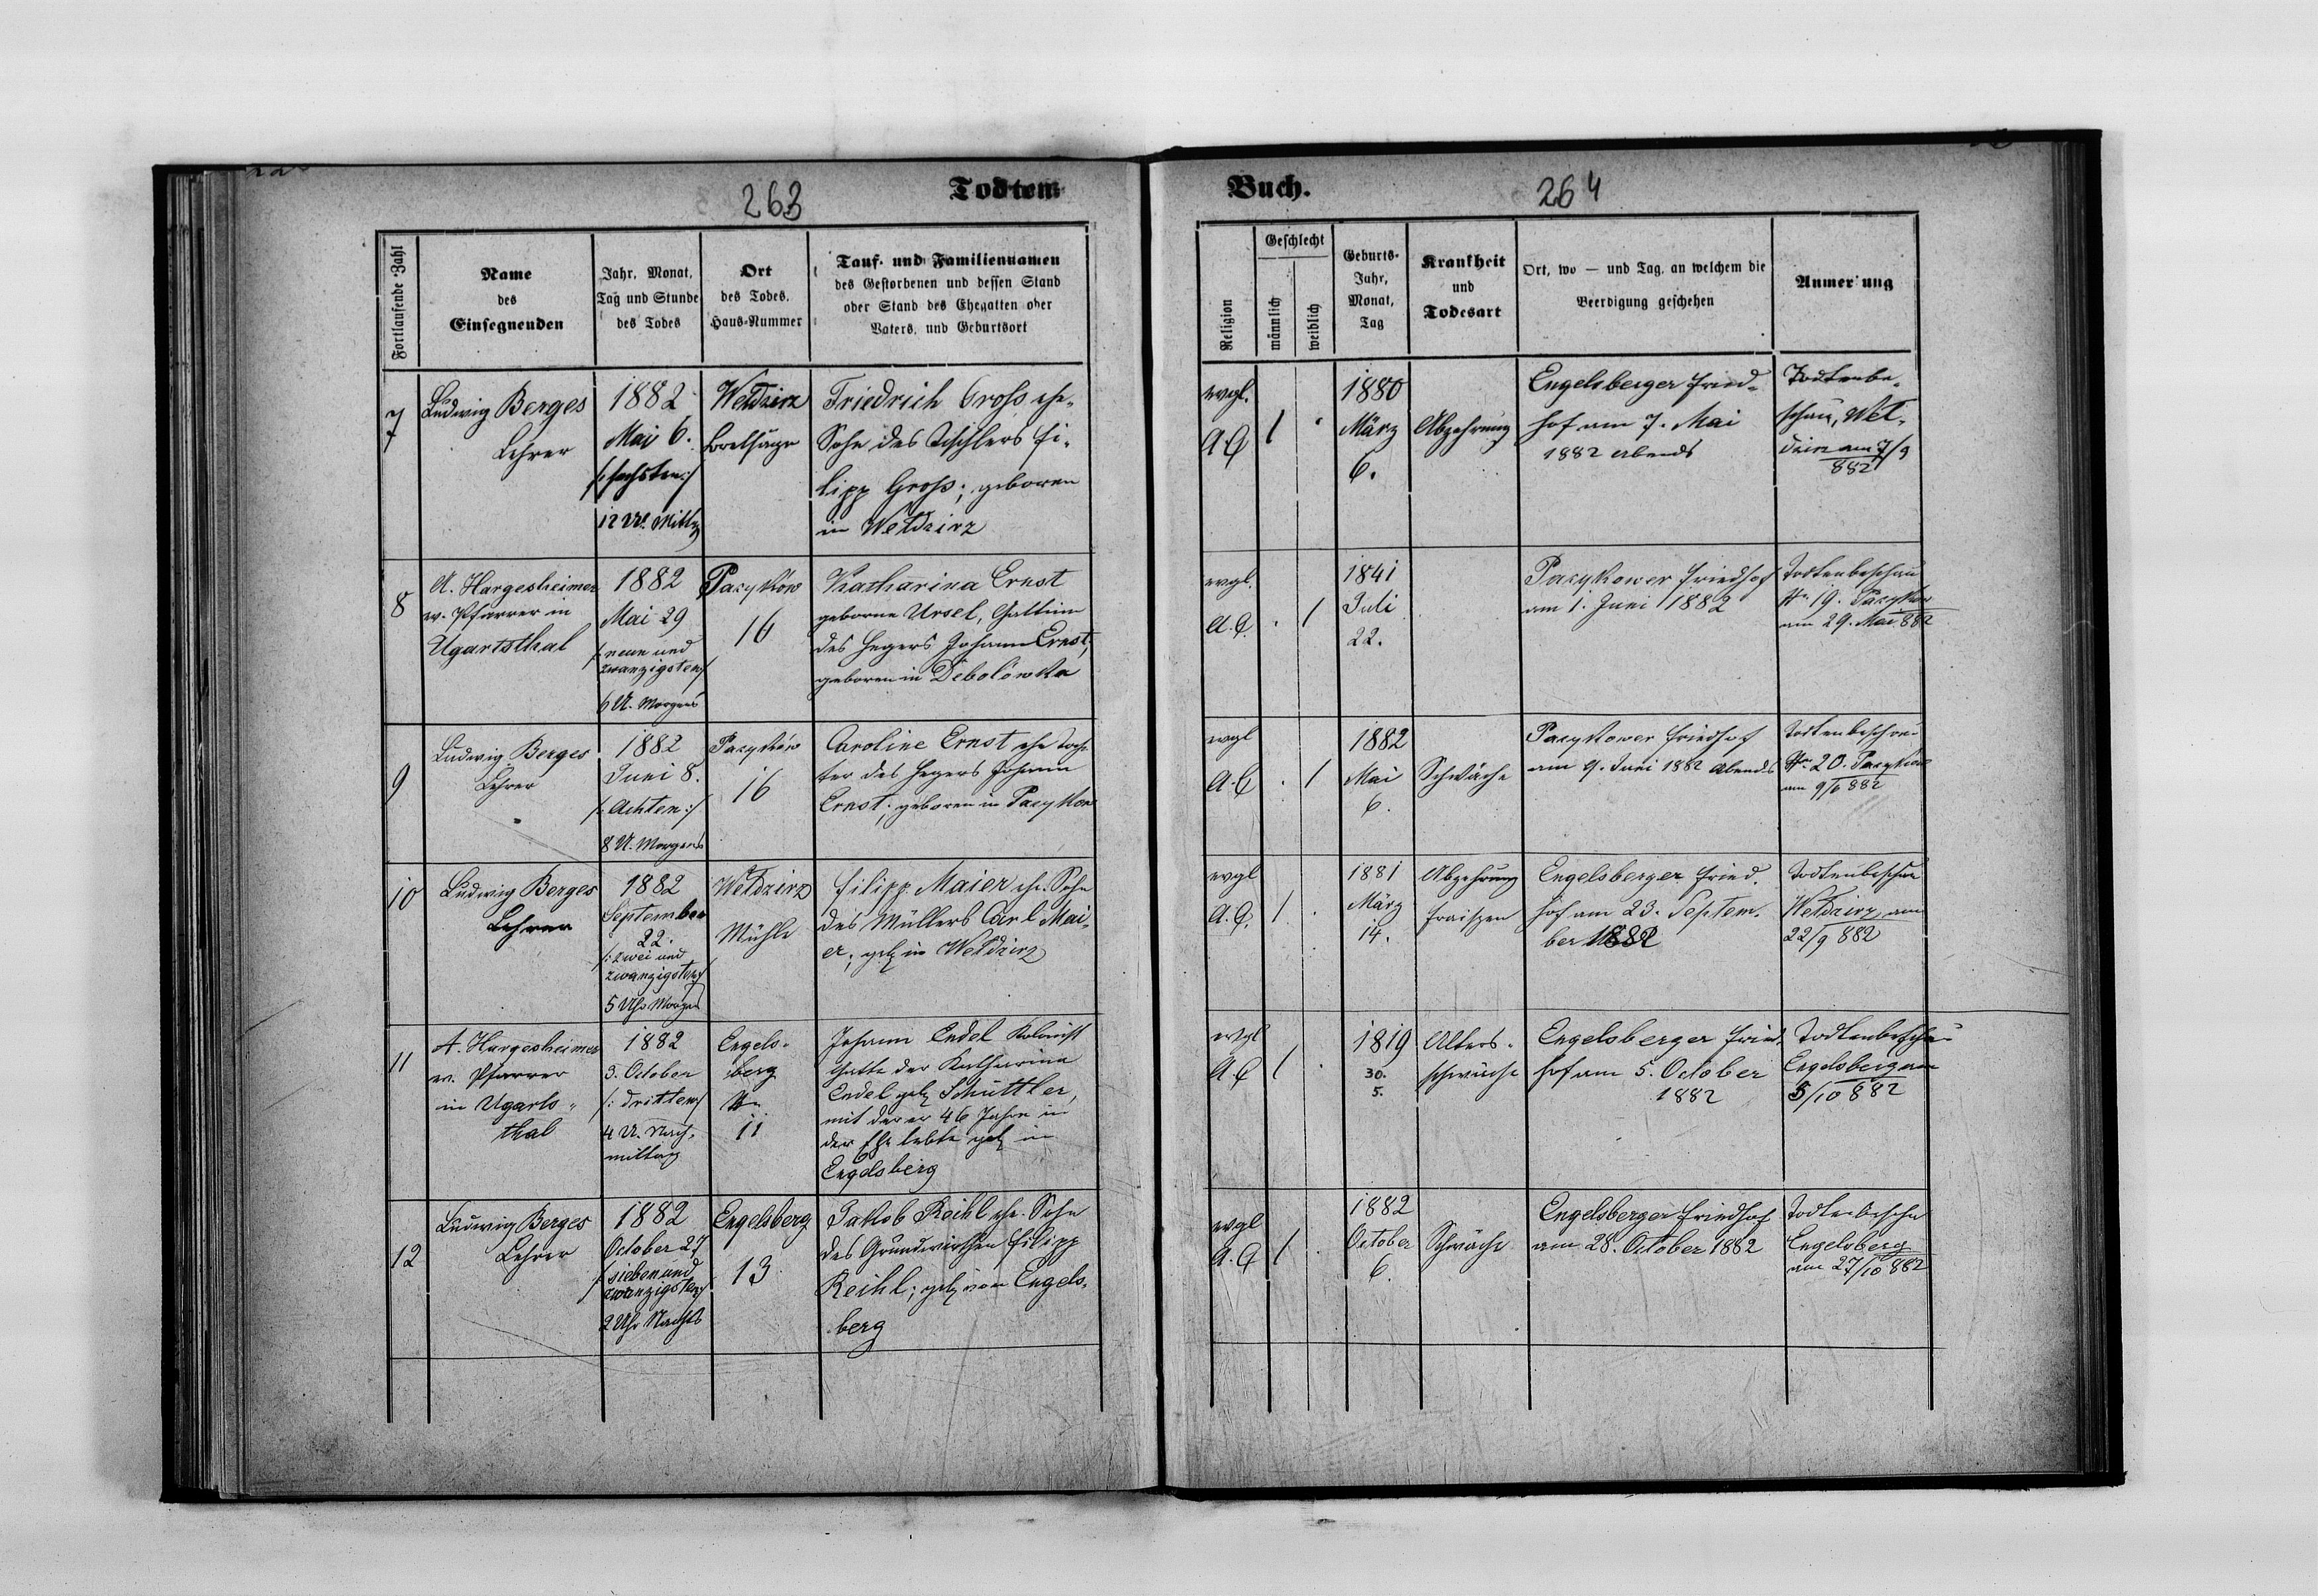 263
Todten
Buch.
264
Fortlaufende-Zahl
Name
des
Einsegnenden
Jahr, Monat,
Tag und Stunde
des Todes
Ort
des Todes,
Haus-Nummer
Tauf- und Familiennamen
des Gestorbenen und dessen Stand
oder Stand des Ehegatten oder
Vaters, und Geburtsort
Religion
Geschlecht
männlich
weiblich
Geburts-
Jahr,
Monat,
Tag
Krankheit
und
Todesart
Ort, wo — und Tag, an welchem die
Beerdigung geschehen
Anmer ung
7
Ludwig Berges
Lehrer
1882
Mai 6.
/: sechsten :/
12 U. Mittg
Wełdzirz
Brettsäge
Friedrich Groß ehe.
Sohn des Tischlers Fi-
lipp Groß; geboren
in Wełdzirz
evgl.
A C
1
1880
März
6.
Abzehrung
Engelsberger Fried-
hof am 7. Mai
1882 Abends
Todtenbe-
schau, Weł-
dzirz am 7/
882
8
A. Hargesheimer
ev. Pfarrer in
Ugartsthal
1882
Mai 29
/: neun und
zwanzigsten :/
6 U. Morgens
Pazyków
16
Katharina Ernst
geborne Ursel, Gattin
des Hegers Johann Ernst,
geboren in Debolówka
evgl.
A. C.
1
1841
Juli
22.
Pazykower Friedhof
am 1. Juni 1882
Todtenbeschau
Nr. 19. Pazyków
am 29. Mai 882
9
Ludwig Berges
Lehrer
1882
Juni 8.
/: Achten :/
8 U. Morgens
Pazyków
16
Caroline Ernst ehe Toch-
ter des Hegers Johann
Ernst; geboren in Pazykow
evgl
A. C
1
1882
Mai
6.
Schwäche
Pazykower Friedhof
am 9. Juni 1882 Abends
Todtenbeschau
Nr. 20. Pazyków
am 9/6 882
10
Ludwig Berges
Lehrer
1882
September
22.
/: zwei und
zwanzigsten :/
5 Uhr Morgens
Wełdzirz
Mühle
Filipp Maier ehe. Sohn
des Müllers Carl Mai-
er; geb. in Wełdzirz
evgl
A. C.
1
1881
März
14.
Abzehrung
Fraisen
Engelsberger Fried-
hof am 23. Septem-
ber 1882
Todtenbeschau
Wełdzirz am
22/9 882
11
A. Hargesheimer
ev. Pfarrer
in Ugarts-
thal
1882
3. October
/: dritten :/
4 U. Nach-
mittag
Engels-
berg
Nr.
11
Johann Endel Kolonist
Gatte der Katharina
Endel geb. Schüttler,
mit der er 46 Jahre in
der Ehe lebte geb. in
Engelsberg
evgl
A. C
1
1819
30.
5.
Alters-
schwäche
Engelsberger Fried-
hof am 5. October
1882
Todtenbeschau
Engelsberg am
5/10 882
12
Ludwig Berges
Lehrer
1882
October 27
/: sieben und
zwanzigsten :/
2 Uhr Nachts
Engelsberg
13
Jakob Reihl ehe. Sohn
des Grundwirthen Filipp
Reihl; geb. von Engels-
berg
evgl
A. C
1
1882
October
6.
Schwäche
Engelsberger Friedhof
am 28. October 1882
Todtenbeschau
Engelsberg
am 27/10 882